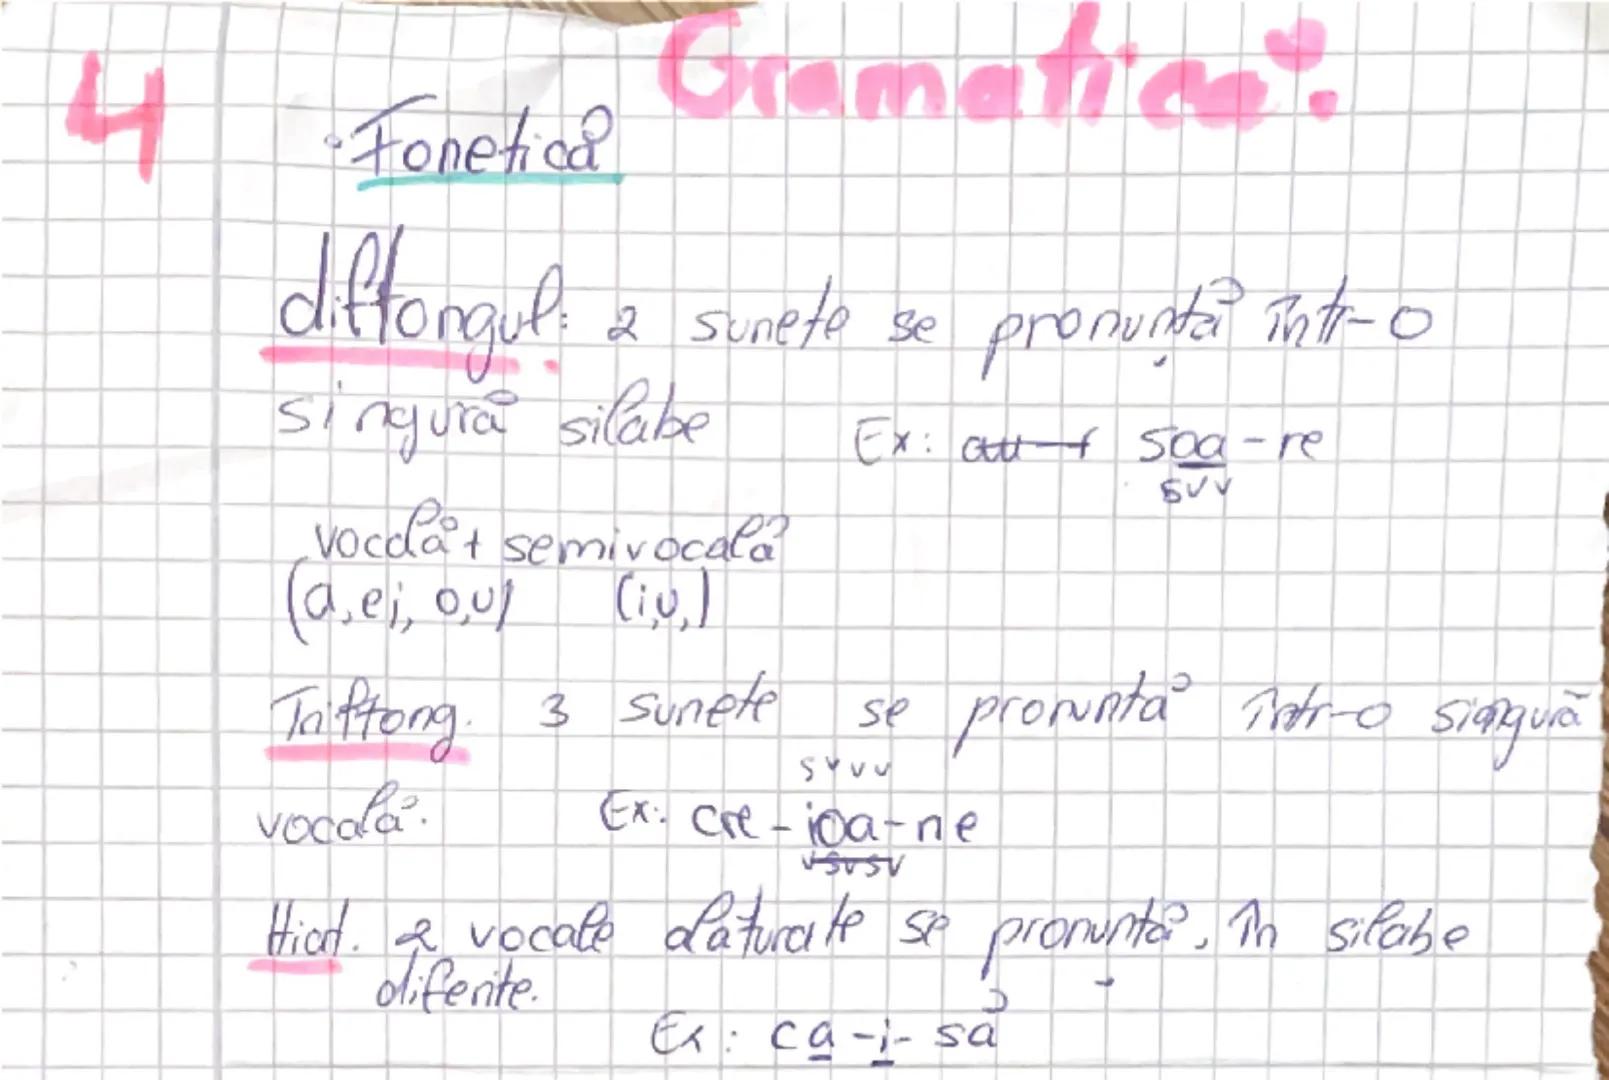 4
Gramatică:
· Fonetică
diftongul: 2 sunete se pronunță într-o
singură silabe Ex: soa-re
sv v
vocală + semivocală
(a, e i, o, u) (i, u, )
Triftong. 3 sunete se pronunta într-o singură
sv v v
vocală. Ex: cre-ioa-ne
Hiat. 2 vocale alaturate se pronunță, în silabe
diferite.
Ex: ca-i-să